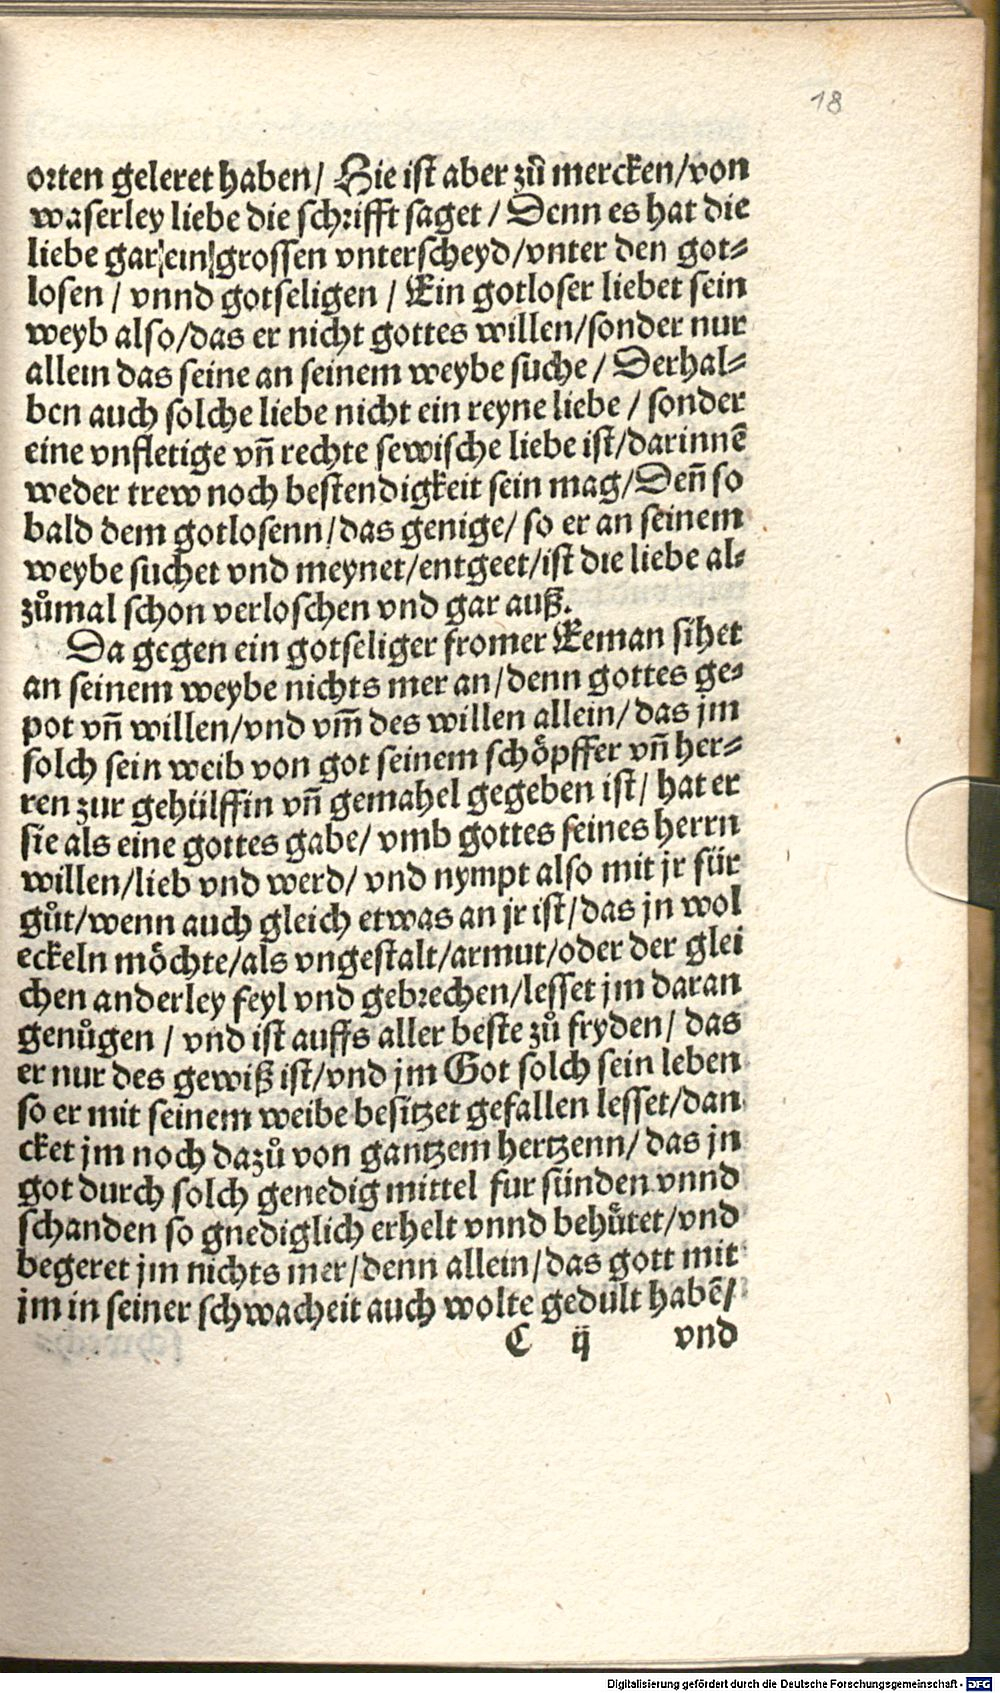 18
orten geleret haben/ Hie ist aber zů mercken/von
waserley liebe die schrifft saget / Denn es hat die
liebe gar ein grossen vnterscheyd/vnter den got-
losen / vnnd gotseligen / Ein gotloser liebet sein
weyb also/das er nicht gottes willen/sonder nur
allein das seine an seinem weybe suche / Derhal-
ben auch solche liebe nicht ein reyne liebe / sonder
eine vnfletige vn̄ rechte sewische liebe ist/darinnē
weder trew noch bestendigkeit sein mag/Den̄ so
bald dem gotlosenn/das genige/ so er an seinem
weybe suchet vnd meynet/entgeet/ist die liebe al-
zůmal schon verloschen vnd gar auß.
Da gegen ein gotseliger fromer Eeman sihet
an seinem weybe nichts mer an/denn gottes ge-
pot vn̄ willen/vnd vm̄ des willen allein/das jm
solch sein weib von got seinem schöpffer vn̄ her-
ren zur gehülffin vn̄ gemahel gegeben ist/ hat er
sie als eine gottes gabe/ vmb gottes seines herrn
willen/lieb vnd werd/ vnd nympt also mit jr für
gůt/wenn auch gleich etwas an jr ist/das jn wol
eckeln möchte/als vngestalt/armut/oder der glei
chen anderley feyl vnd gebrechen/lesset jm daran
genůgen / vnd ist auffs aller beste zů fryden/ das
er nur des gewiß ist/vnd jm Got solch sein leben
so er mit seinem weibe besitzet gefallen lesset/dan
cket jm noch dazů von gantzem hertzenn/ das jn
got durch solch genedig mittel fur sünden vnnd
schanden so gnediglich erhelt vnnd behůtet/vnd
begeret jm nichts mer/denn allein/das gott mit
jm in seiner schwacheit auch wolte gedult habē/
C ij vnd
Digitalisierung gefördert durch die Deutsche Forschungsgemeinschaft - DFG